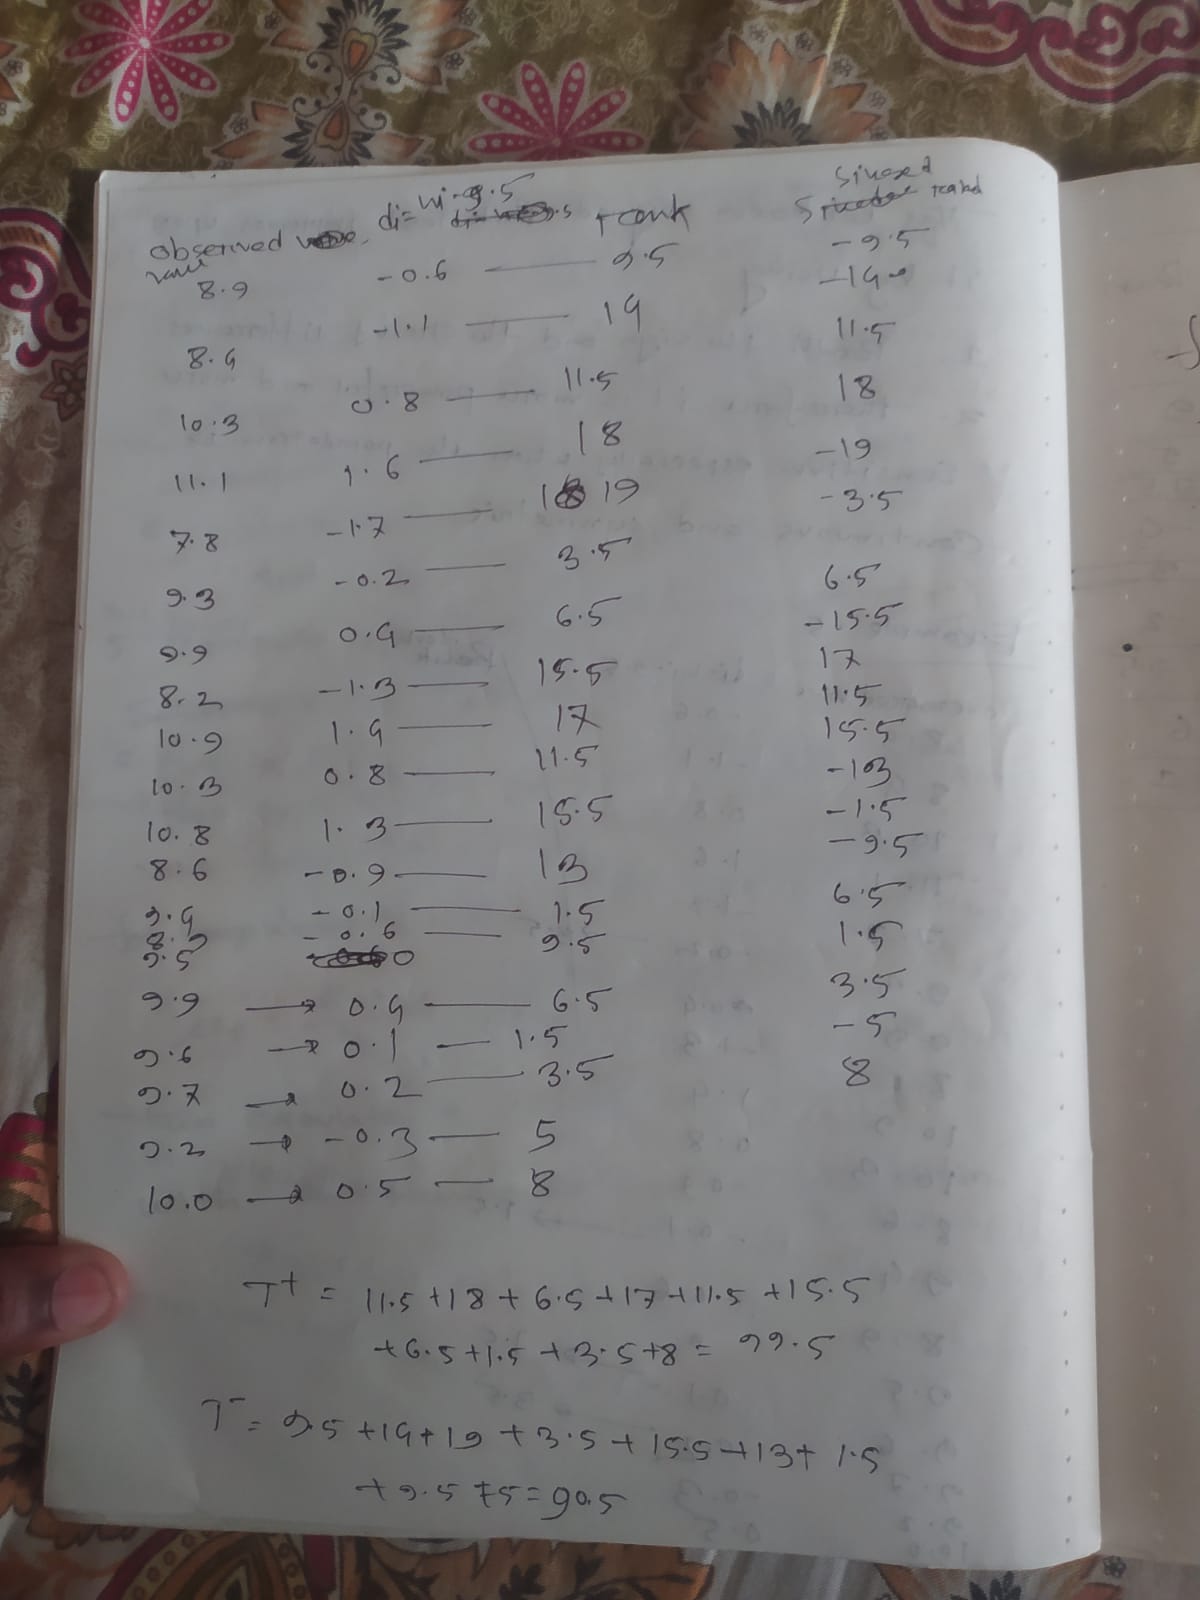 observed value di = xi - 9.5 rank Singed rankd
8.9 -0.6 — 9.5 -9.5
8.4 -1.1 — 14 -14
10.3 0.8 — 11.5 11.5
11.1 1.6 — 18 18
7.8 -1.7 — 19 -19
9.3 -0.2 — 3.5 -3.5
9.9 0.4 — 6.5 6.5
8.2 -1.3 — 15.5 -15.5
10.9 1.4 — 17 17
10.3 0.8 — 11.5 11.5
10.8 1.3 — 15.5 15.5
8.6 -0.9 — 13 -13
9.4 -0.1 — 1.5 -1.5
8.9 -0.6 — 9.5 -9.5
9.5 0
9.9 → 0.4 — 6.5 6.5
9.6 → 0.1 — 1.5 1.5
9.7 → 0.2 — 3.5 3.5
9.2 → -0.3 — 5 -5
10.0 → 0.5 — 8 8
T+ = 11.5 + 18 + 6.5 + 17 + 11.5 + 15.5
+ 6.5 + 1.5 + 3.5 + 8 = 99.5
T- = 9.5 + 14 + 19 + 3.5 + 15.5 + 13 + 1.5
+ 9.5 + 5 = 90.5